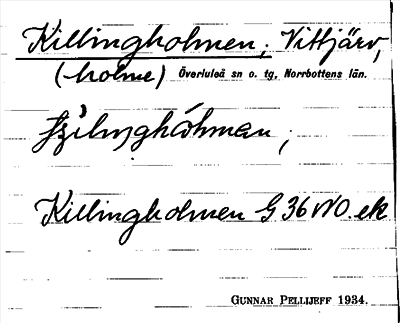 Killingholmen, Vittjärv,
(-holme) Överluleå sn o. tg, Norrbottens län.
Killingholmen G 36 NO. ek
GUNNAR PELLIJEFF 1934.